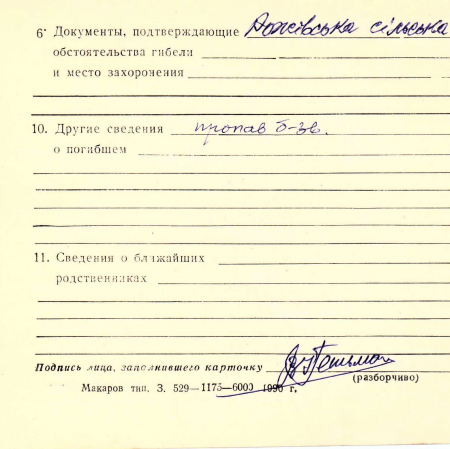 6. Документы, подтверждающие сільська
обстоятельства гибели
и место захоронения
10. Другие сведения пропав б-зв.
о погибшем
11. Сведения о ближайших
родственниках
Подпись лица, заполнившего карточку
(разборчиво)
Макаров тип. З. 529—1175—6000 1990 г.